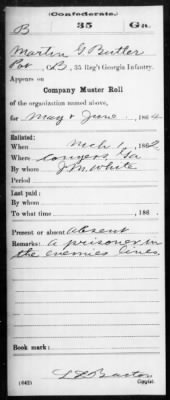 Confederate.
B 35 Ga.
Martin G Butler
Pvt, Co. D, 35 Reg't Georgia Infantry.
Appears on
Company Muster Roll
of the organization named above,
for May & June, 1864
Enlisted:
When Mch 1, 1862
Where Conyers, Ga
By whom J. M. White
Period
Last paid:
By whom
To what time , 186 .
Present or absent Absent
Remarks: A prisoner in
the enemies lines.
Book mark:
(642) Barton
Copyist.